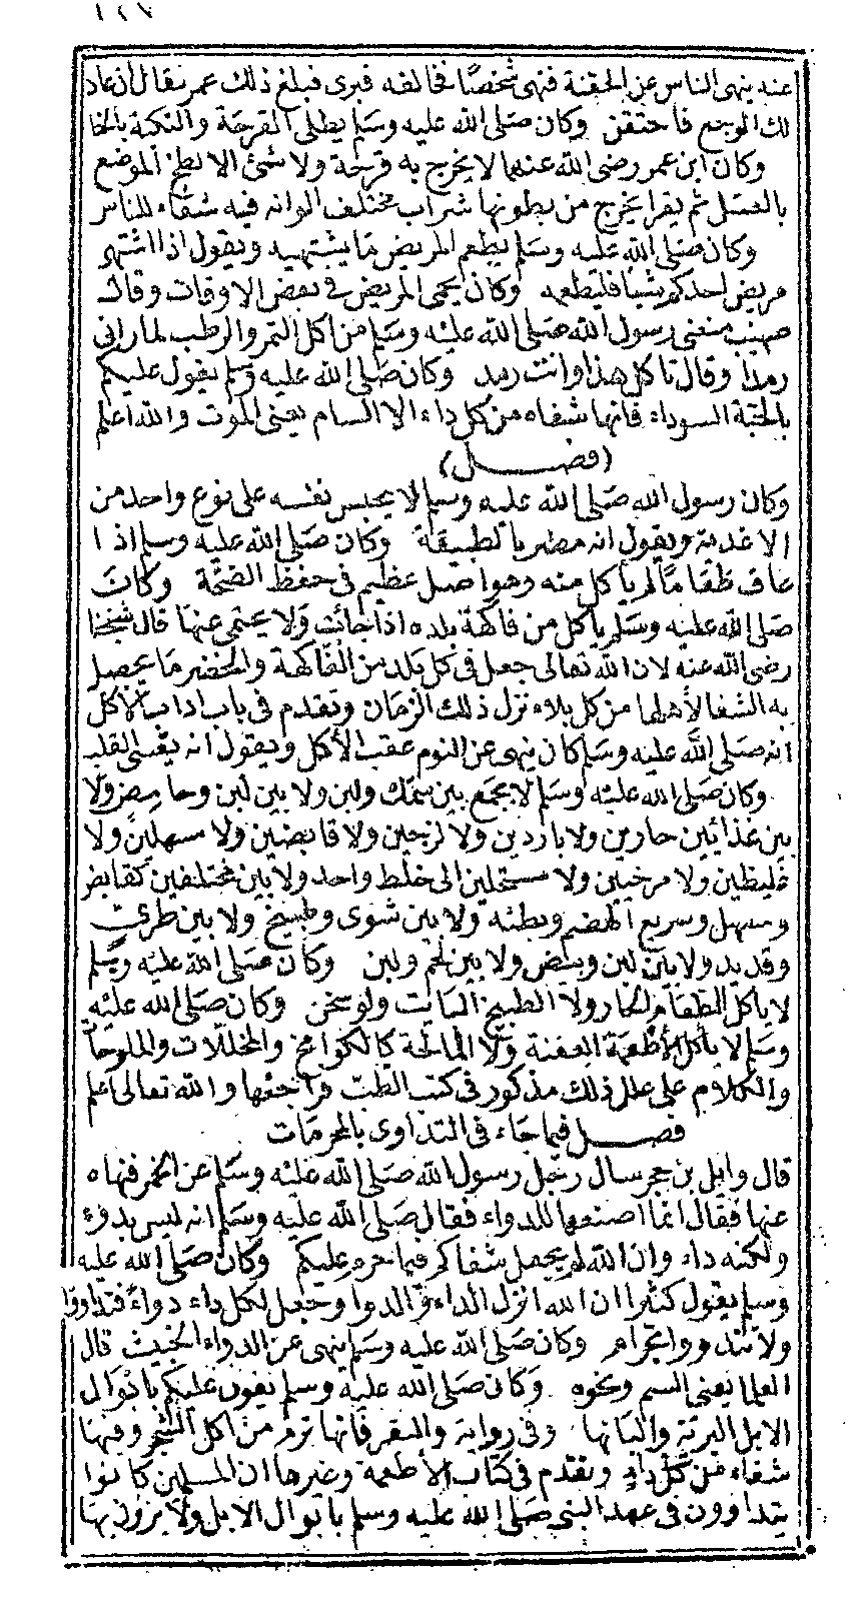 ١٢٧
عنه ينهى الناس عن الحقنة فنهى شخصًا فخالفه فبرى فبلغ ذلك عمر فقال ان عاد
لك الوجع فاحتقن وكان صلى الله عليه وسلم يطلى القرحة والنكبة بالحنا
وكان ابن عمر رضى الله عنهما لا يخرج به قرحة ولا شئ الا لطخ الموضع
بالعسل ثم يقرا يخرج من بطونها شراب مختلف الوانه فيه شفاء للناس
وكان صلى الله عليه وسلم يطعم المريض ما يشتهيه ويقول اذا اشتهى
مريض احدكم شيًا فليطعمه وكان يحمى المريض فى بعض الاوقات وقال
صهيب منعنى رسول الله صلى الله عليه وسلم من اكل التمر والرطب لما رانى
رمدا وقال تاكل هذا وانت رمد وكان صلى الله عليه وسلم يقول عليكم
بالحبة السوداء فانها شفاء من كل داء الا السام يعنى الموت والله اعلم
(فصل)
وكان رسول الله صلى الله عليه وسلم لا يحبس نفسه على نوع واحد من
الاغدية ويقول انه مضر بالطبيعة وكان صلى الله عليه وسلم اذا
عاف طعامًا لم يأكل منه وهو اصل عظيم فى حفظ الصحة وكان
صلى الله عليه وسلم يأكل من فاكهة بلده اذا جائت ولا يحتمى عنها قال شيخنا
رضى الله عنه لان الله تعالى جعل فى كل بلد من الفاكهة والخضر ما يحصل
به الشفا لأهلها من كل بلاء نزل ذلك الزمان وتقدم فى باب اداب الأكل
انه صلى الله عليه وسلم كان ينهى عن النوم عقب الأكل ويقول انه يقسى القلب
وكان صلى الله عليه وسلم لا يجمع بين سمك ولبن ولا بين لبن وحامض ولا
بين غذائين حارين ولا باردين ولا لزجين ولا قابضين ولا مسهلين ولا
غليظين ولا مرخيين ولا مستحيلين الى خلط واحد ولا بين مختلفين كقابض
ومسهل وسريع الهضم وبطئه ولا بين شوى وطبيخ ولا بين طرى
وقديد ولا بين لبن وبيض ولا بين لحم ولبن وكان صلى الله عليه وسلم
لا يأكل الطعام الحار ولا الطبيخ البايت ولو سخن وكان صلى الله عليه
وسلم لا يأكل الأطعمة العفنة ولا المالحة كالكوامخ والمخللات والملوحات
والكلام على علل ذلك مذكور فى كتب الطب فراجعها والله تعالى اعلم
فصل فيما جاء فى التداوى بالمحرمات
قال وايل بن حجر سال رجل رسول الله صلى الله عليه وسلم عن الخمر فنهاه
عنها فقال انما اصنعها للدواء فقال صلى الله عليه وسلم انه ليس بدوء
ولكنه داء وان الله لم يجعل شفاكم فيما حرم عليكم وكان صلى الله عليه
وسلم يقول كثيرا ان الله انزل الداء والدوا وجعل لكل داء دواءً فتداووا
ولا تتداووا بحرام وكان صلى الله عليه وسلم ينهى عن الدواء الخبيث قال
العلما يعنى السم ونحوه وكان صلى الله عليه وسلم يقول عليكم بابوال
الابل البرية والبانها وفى رواية والبقر فانها ترم من اكل الشجر وفيها
شفاء من كل داءٍ وتقدم فى كتاب الأطعمة وغيرها ان المسلمين كانوا
يتداوون فى عهد النبى صلى الله عليه وسلم بابوال الابل ولا يرون بها